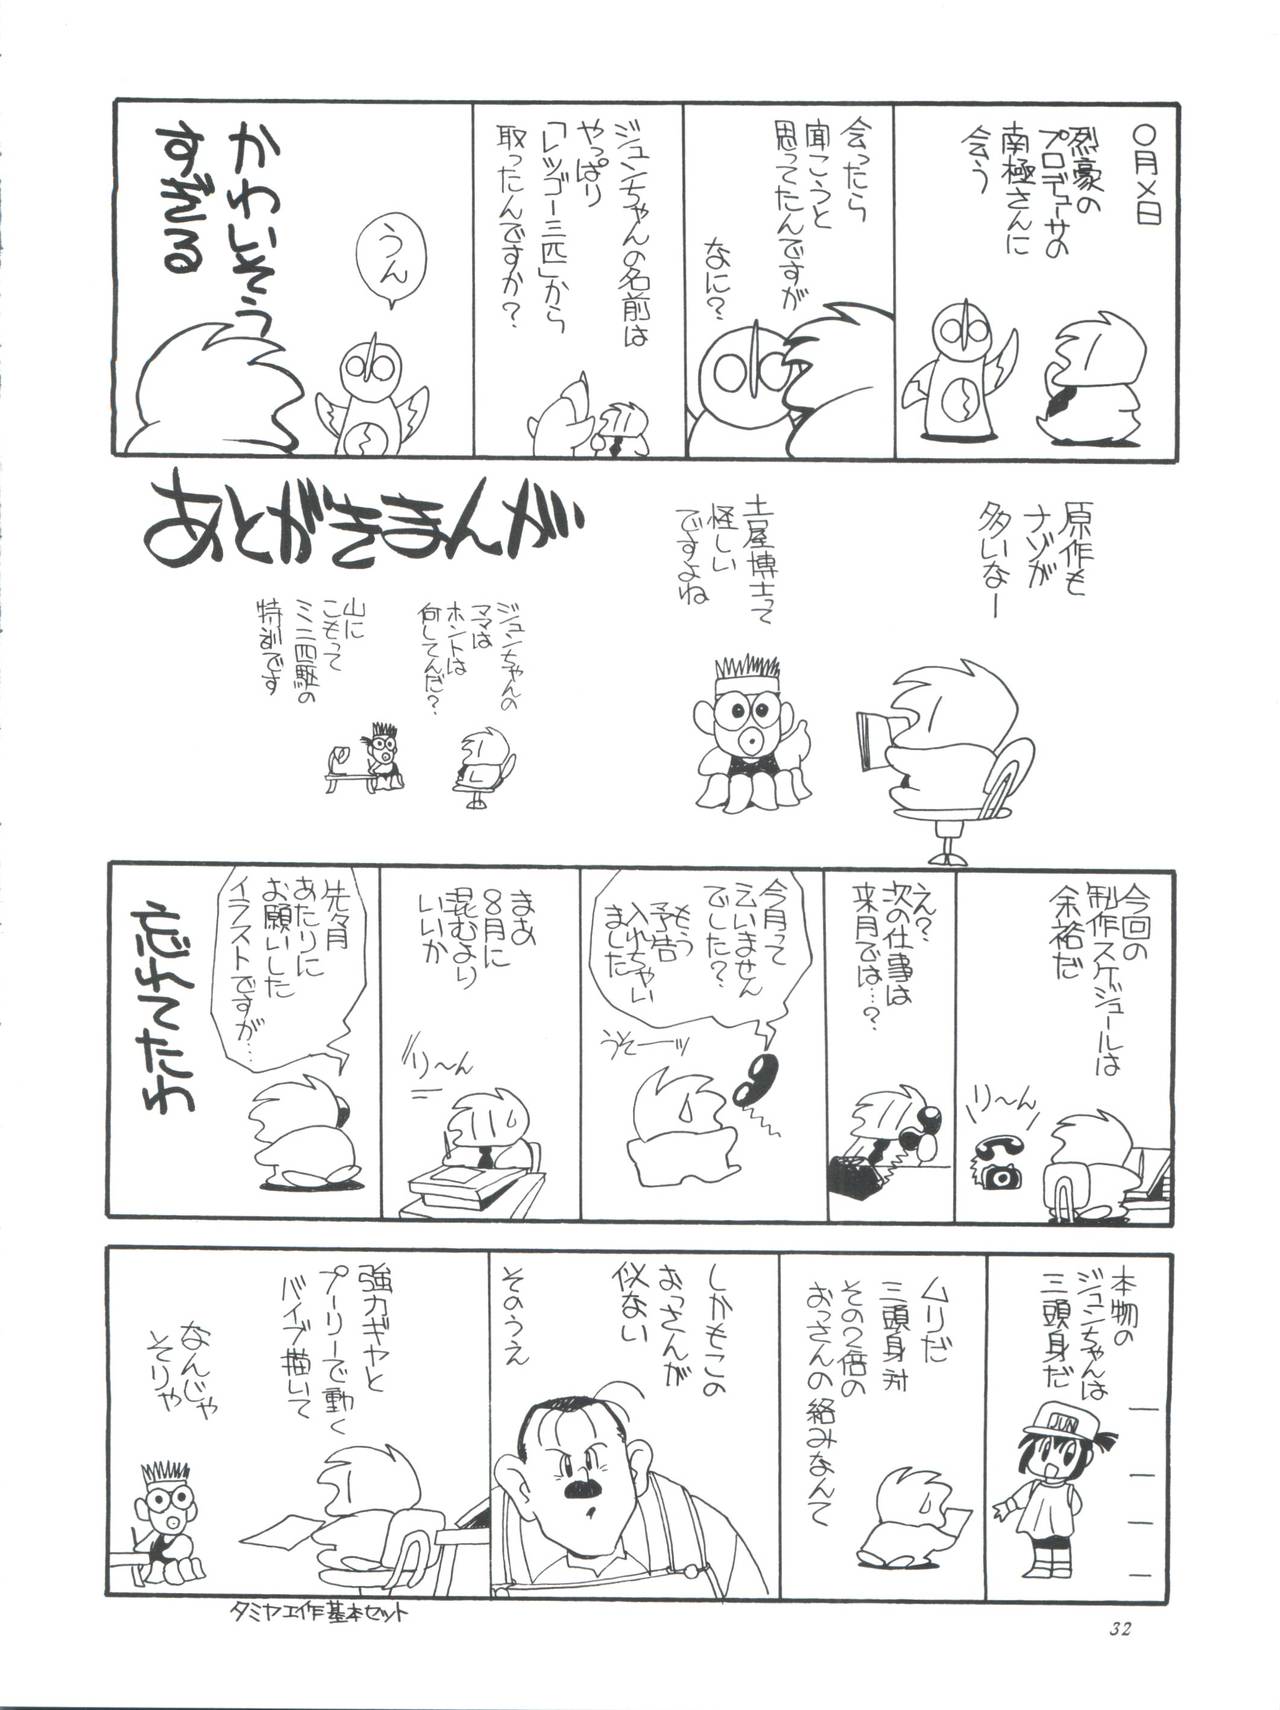 〇月×日
烈豪の
プロデューサの
南極さんに
会う
会ったら
聞こうと
思ってたんですが
なに？
ジュンちゃんの名前は
やっぱり
「レツゴー三匹」から
取ったんですか？
うん
かわいそう
すぎる
あとがきまんが
原作も
ナゾが
多いなー
土屋博士って
怪しい
ですよね
ジュンちゃんの
ママは
ホントは
何してんだ？
山に
こもって
ミニ四駆の
特訓です
今回の
制作スケジュールは
余裕だ
り〜ん
え？
次の仕事は
来月では…？
今月って
云いません
でした？
もう
予告
入れちゃい
ました
うそーッ
まあ
8月に
混むより
いいか
り〜ん
先々月
あたりに
お願いした
イラストですが…
忘れてたわ
本物の
ジュンちゃんは
三頭身だ
JUN
ムリだ
三頭身対
その2倍の
おっさんの絡みなんて
しかもこの
おっさんが
似ない
そのうえ
強力ギヤと
プーリーで動く
バイブ描いて
なんじゃ
そりゃ
タミヤ工作基本セット
32